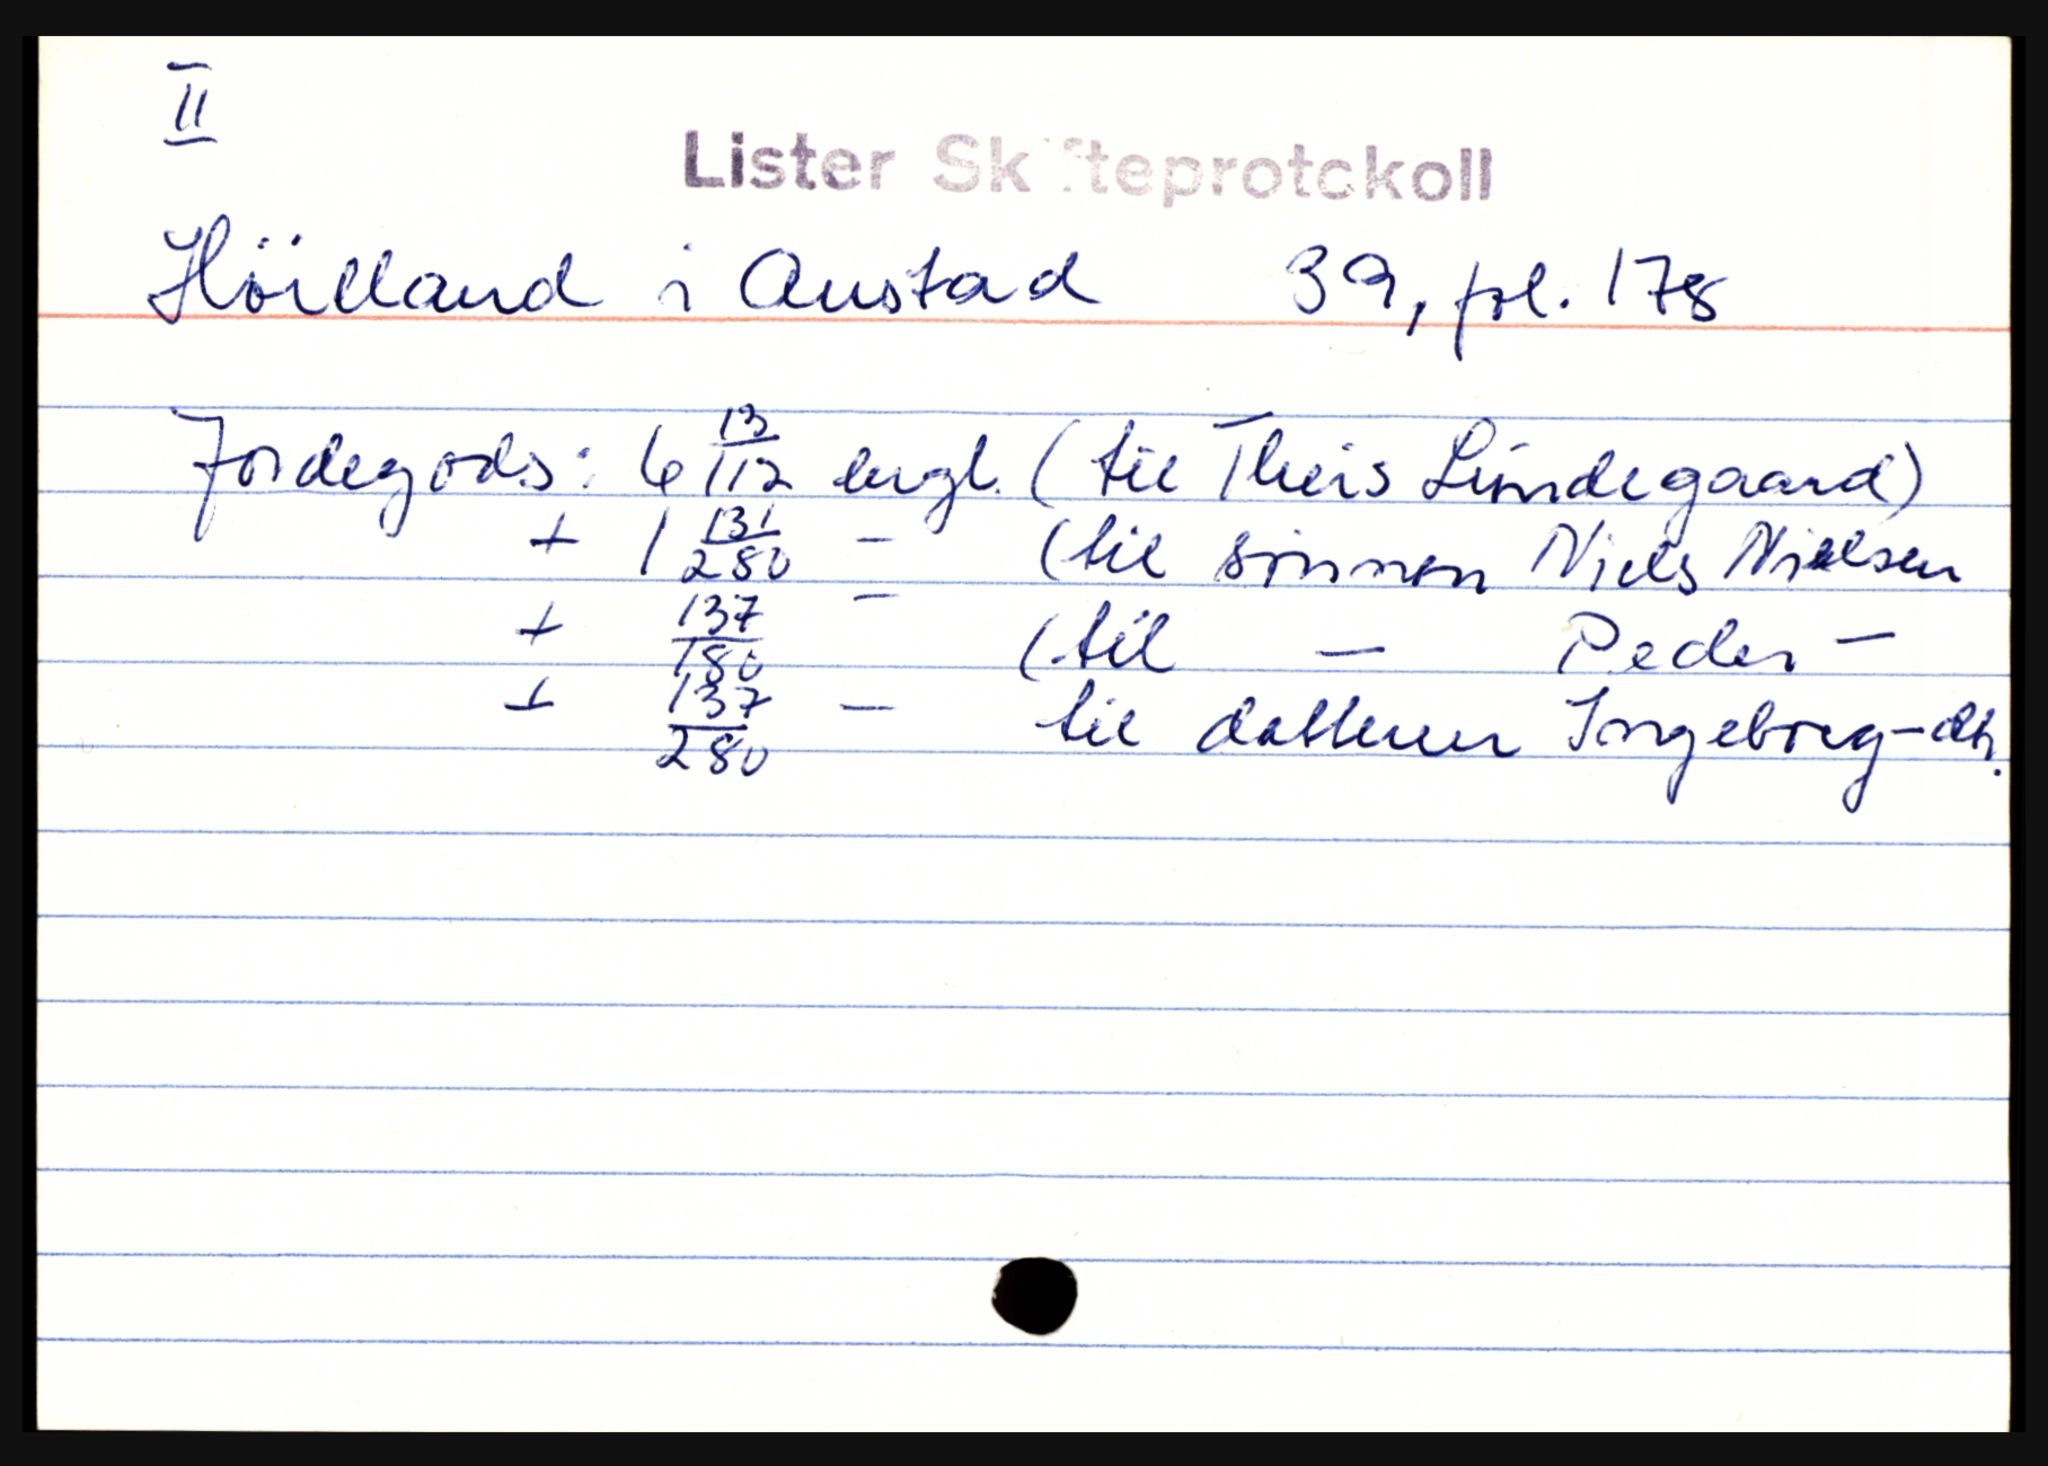 II
Lister Skifteprotokoll
Höilland i Austad 39, fol. 178
Jordegods: 6 13/112 engl. (til Theis Lindegaard)
+ 1 131/280 – (til sönnen Niels Nielsen
+ 137/180 – (til – Peder –
+ 137/280 – til datteren Ingeborg – dtr.